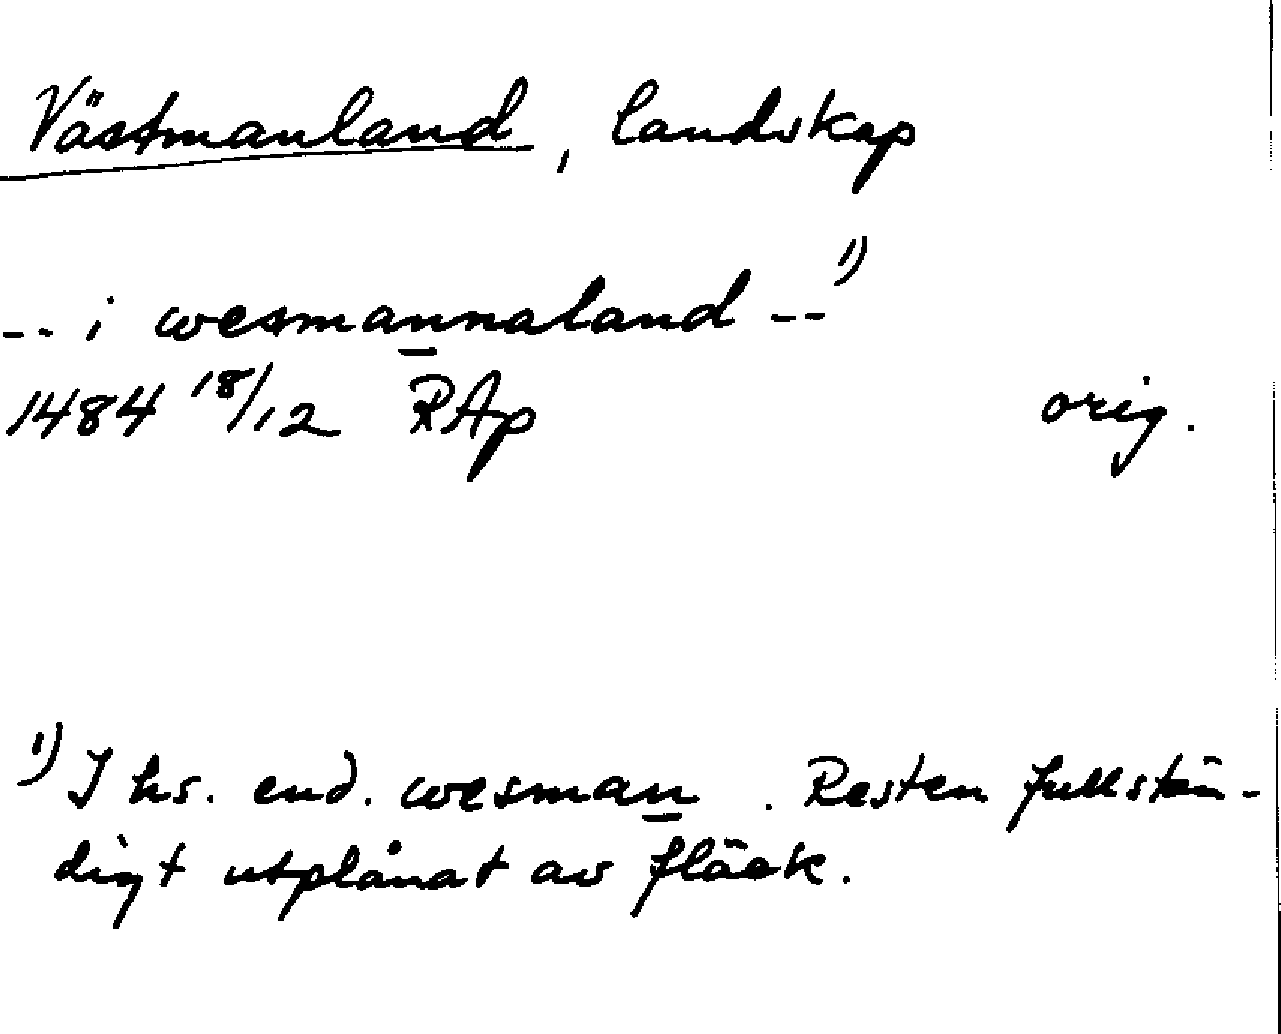 Västmanland, landskap
-- i wesmannaland -- 1)
1484 18/12 RAp orig.
1) I hs. end. wesman . Resten fullstän-
digt utplånat av fläck.